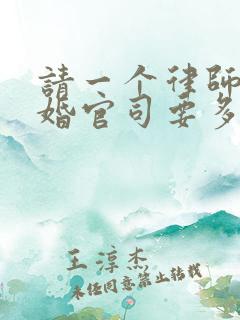 請一个律師
婚官司要多
王淳杰
未经同意禁止转载